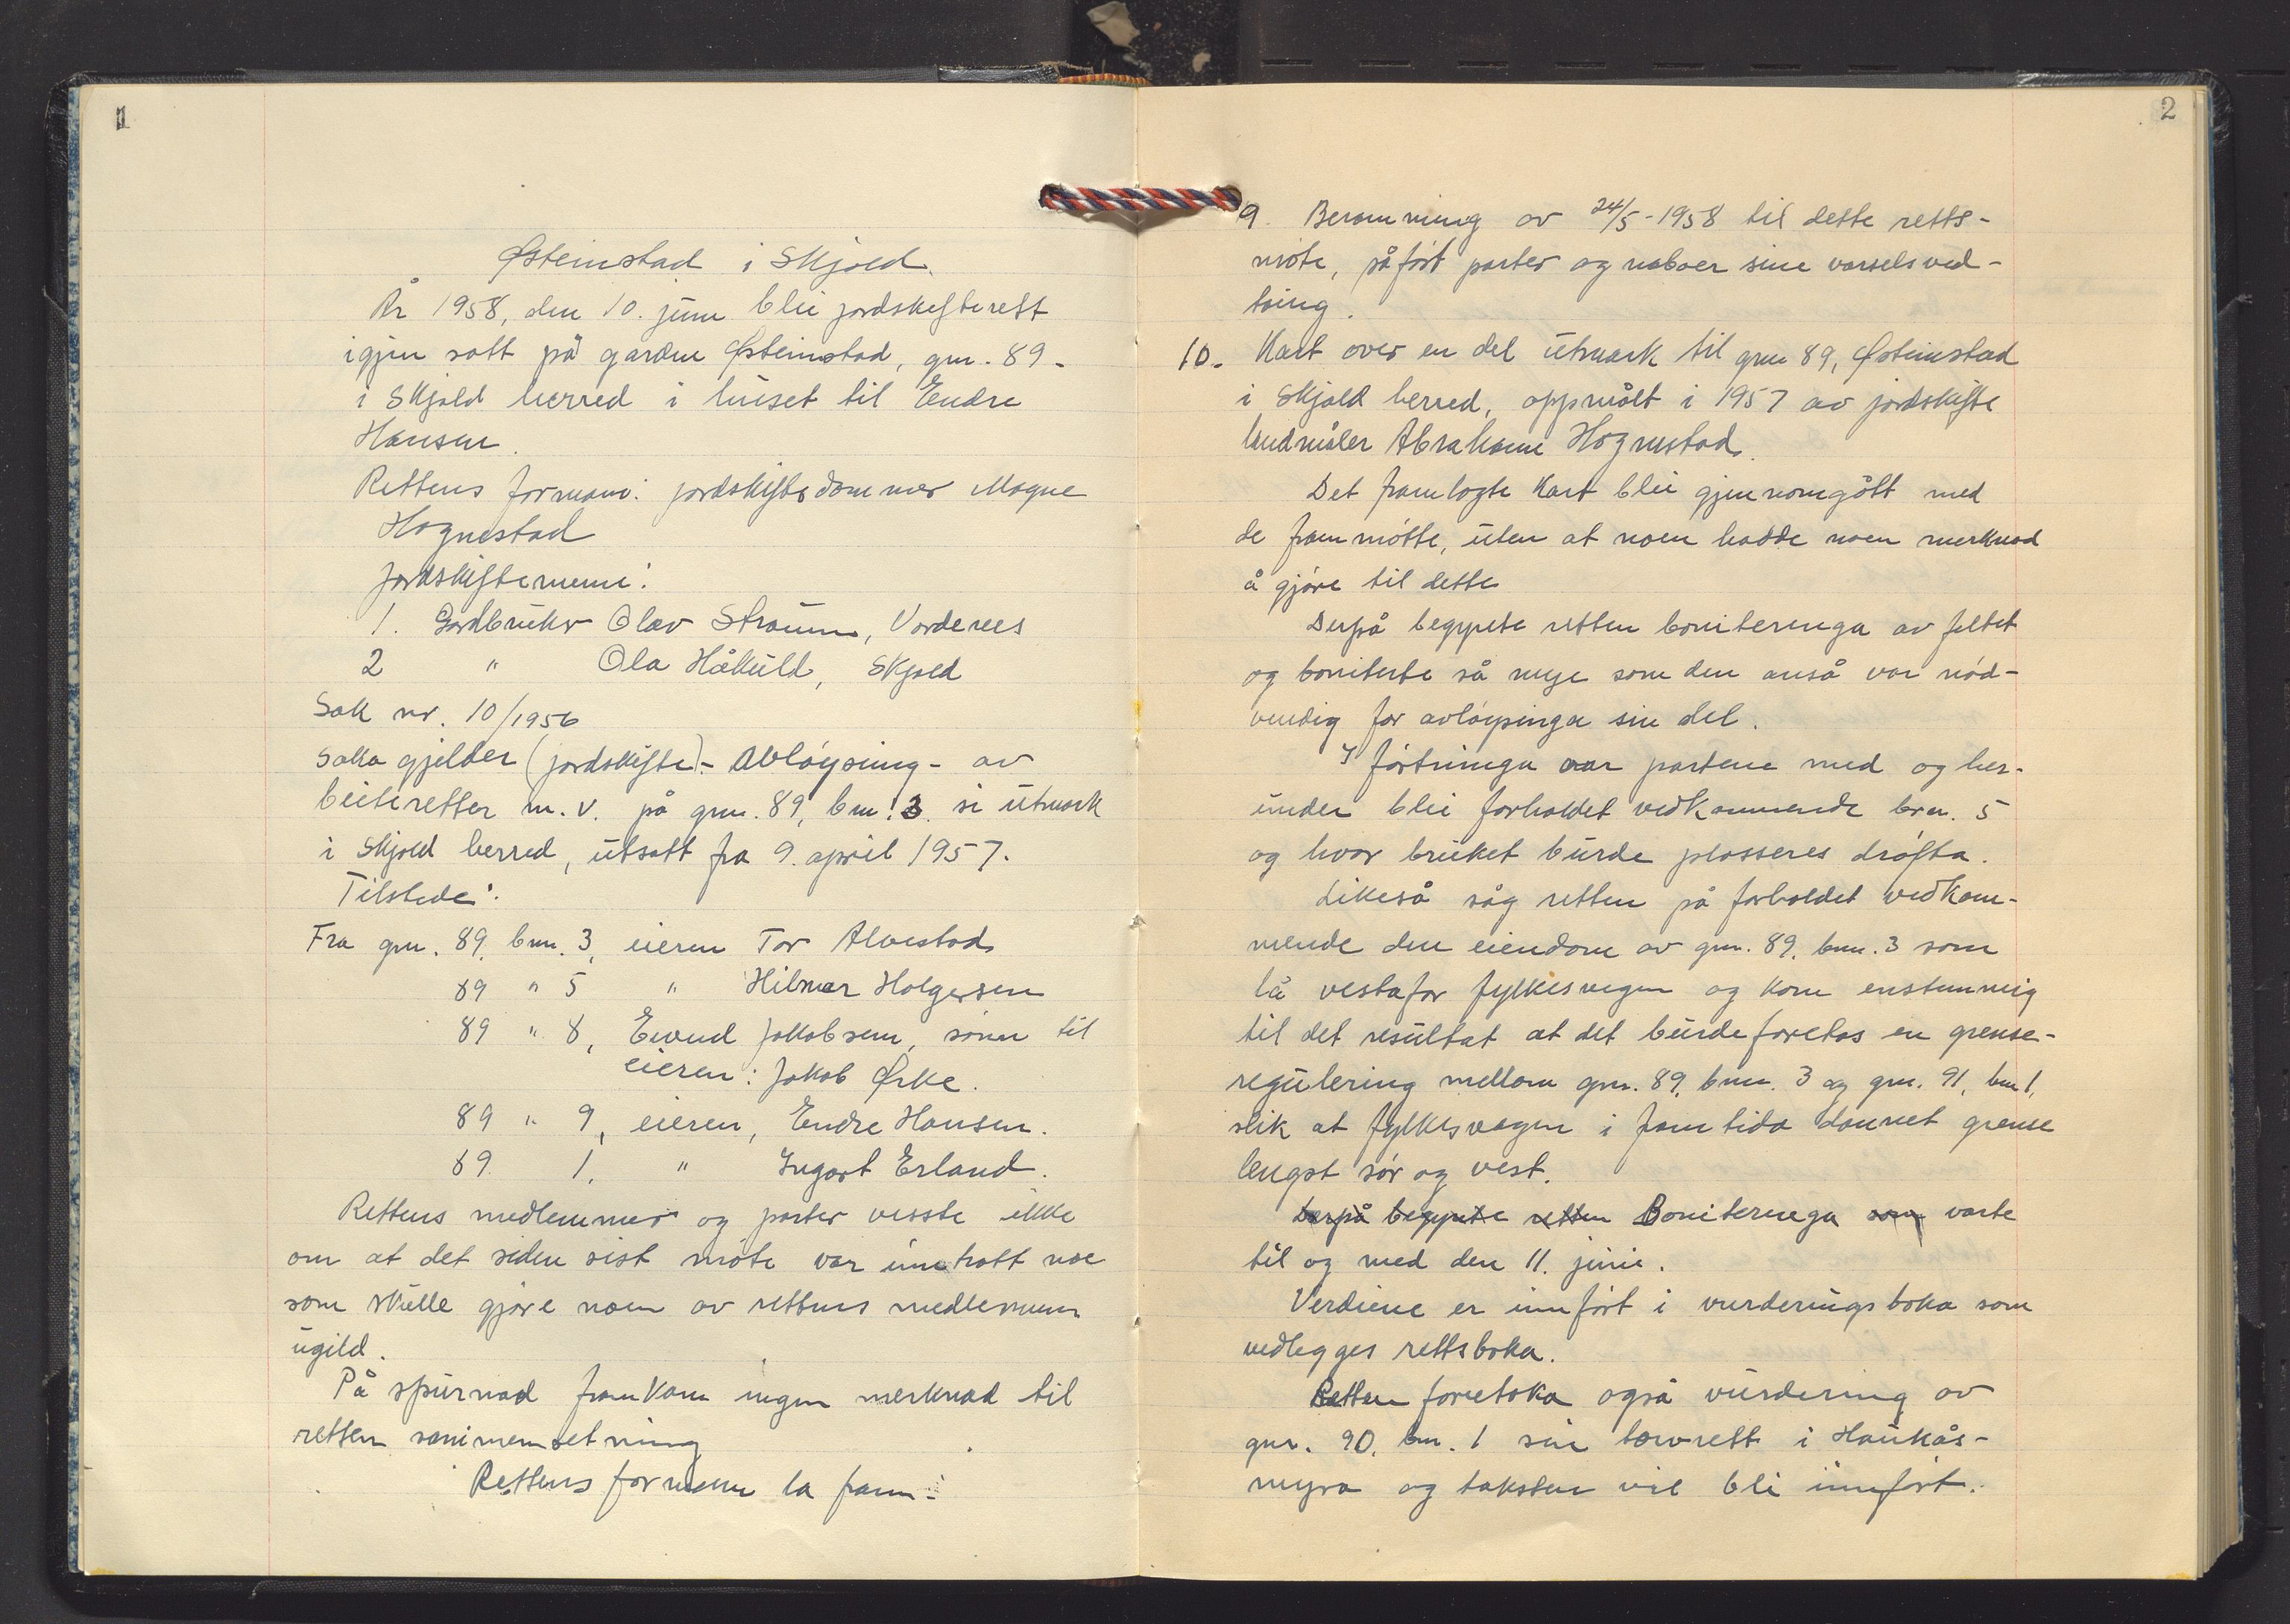 1
Østeinstad i Skjold.
År 1958, den 10. juni blei jordskifterett
igjen satt på garden Østeinstad, gnr. 89 -
i Skjold herred i huset til Endre
Hansen.
Rettens formann: jordskiftedommer Magne
Hognestad
Jordskiftemenn:
1. Gardbruker Olav Straum, Vordenes
2 " Ola Håkull, Skjold
Sak nr. 10/1956
Saka gjelder (jordskifte) - Avløysing - av
beiteretter m. v. på gnr. 89, bnr. 3. si utmark
i Skjold herred, utsatt fra 9. april 1957.
Tilstede:
Fra gnr. 89, bnr. 3, eieren Tor Alvestad
89 " 5 " Hilmar Holgersen
89 " 8, Eivind Jakobsen, sønn til
eieren: Jakob Ørke.
89 " 9, eieren, Endre Hansen.
89. 1, " Ingort Erland.
Rettens medlemmer og parter visste ikke
om at det siden sist møte var inntrått noe
som skulle gjøre noen av rettens medlemmer
ugild.
På spurnad framkom ingen merknad til
retten sammensetning
Rettens formann la fram:
2
9. Beramming av 24/5-1958 til dette retts-
møte, påført parter og naboer sine varselsved-
taing.
10. Kart over en del utmark til gnr 89, Østeinstad
i Skjold herred, oppmålt i 1957 av jordskifte
landmåler Abraham Hognestad.
Det framlagte kart blei gjennomgått med
de frammøtte, uten at noen hadde noen merknad
å gjøre til dette
Derpå begynte retten boniteringa av feltet
og boniterte så mye som den anså var nød-
vendig for avløysinga sin del.
I førtninga var partene med og her-
under blei forholdet vedkommende bnr. 5
og hvor bruket burde plasseres drøfta.
Likeså såg retten på forholdet vedkom-
mende den eiendom av gnr. 89, bnr. 3 som
lå vestafor fylkesvegen og kom enstemmig
til det resultat at det burde foretas en grense-
regulering mellom gnr. 89, bnr. 3 og gnr. 91, bnr 1,
slik at fylkesvegen i framtida dannet grense
lengst sør og vest.
Derpå begynte retten Boniteringa som varte
til og med den 11. juni.
Verdiene er innført i vurderingsboka som
vedlegges rettsboka.
Retten foretoka også vurdering av
gnr. 90, bnr. 1 sin torvrett i Haukås-
myra og taksten vil bli innført.